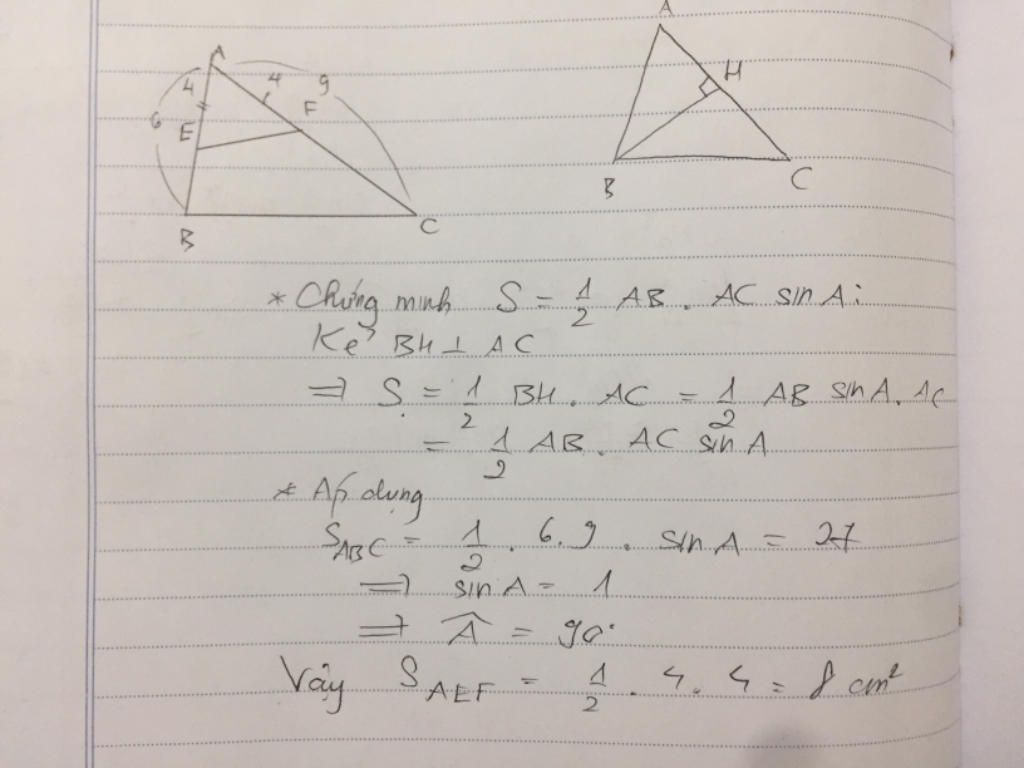 A
4
4
9
F
6
E
B
C
A
H
B
C
* Chứng minh S = 1/2 AB . AC sin A :
Kẻ BH ⊥ AC
⇒ S = 1/2 BH . AC = 1/2 AB sin A . AC
= 1/2 AB . AC sin A
* Áp dụng
S_ABC = 1/2 . 6 . 9 . sin A = 27
⇒ sin A = 1
⇒ Â = 90°
Vậy S_AEF = 1/2 . 4 . 4 = 8 cm²